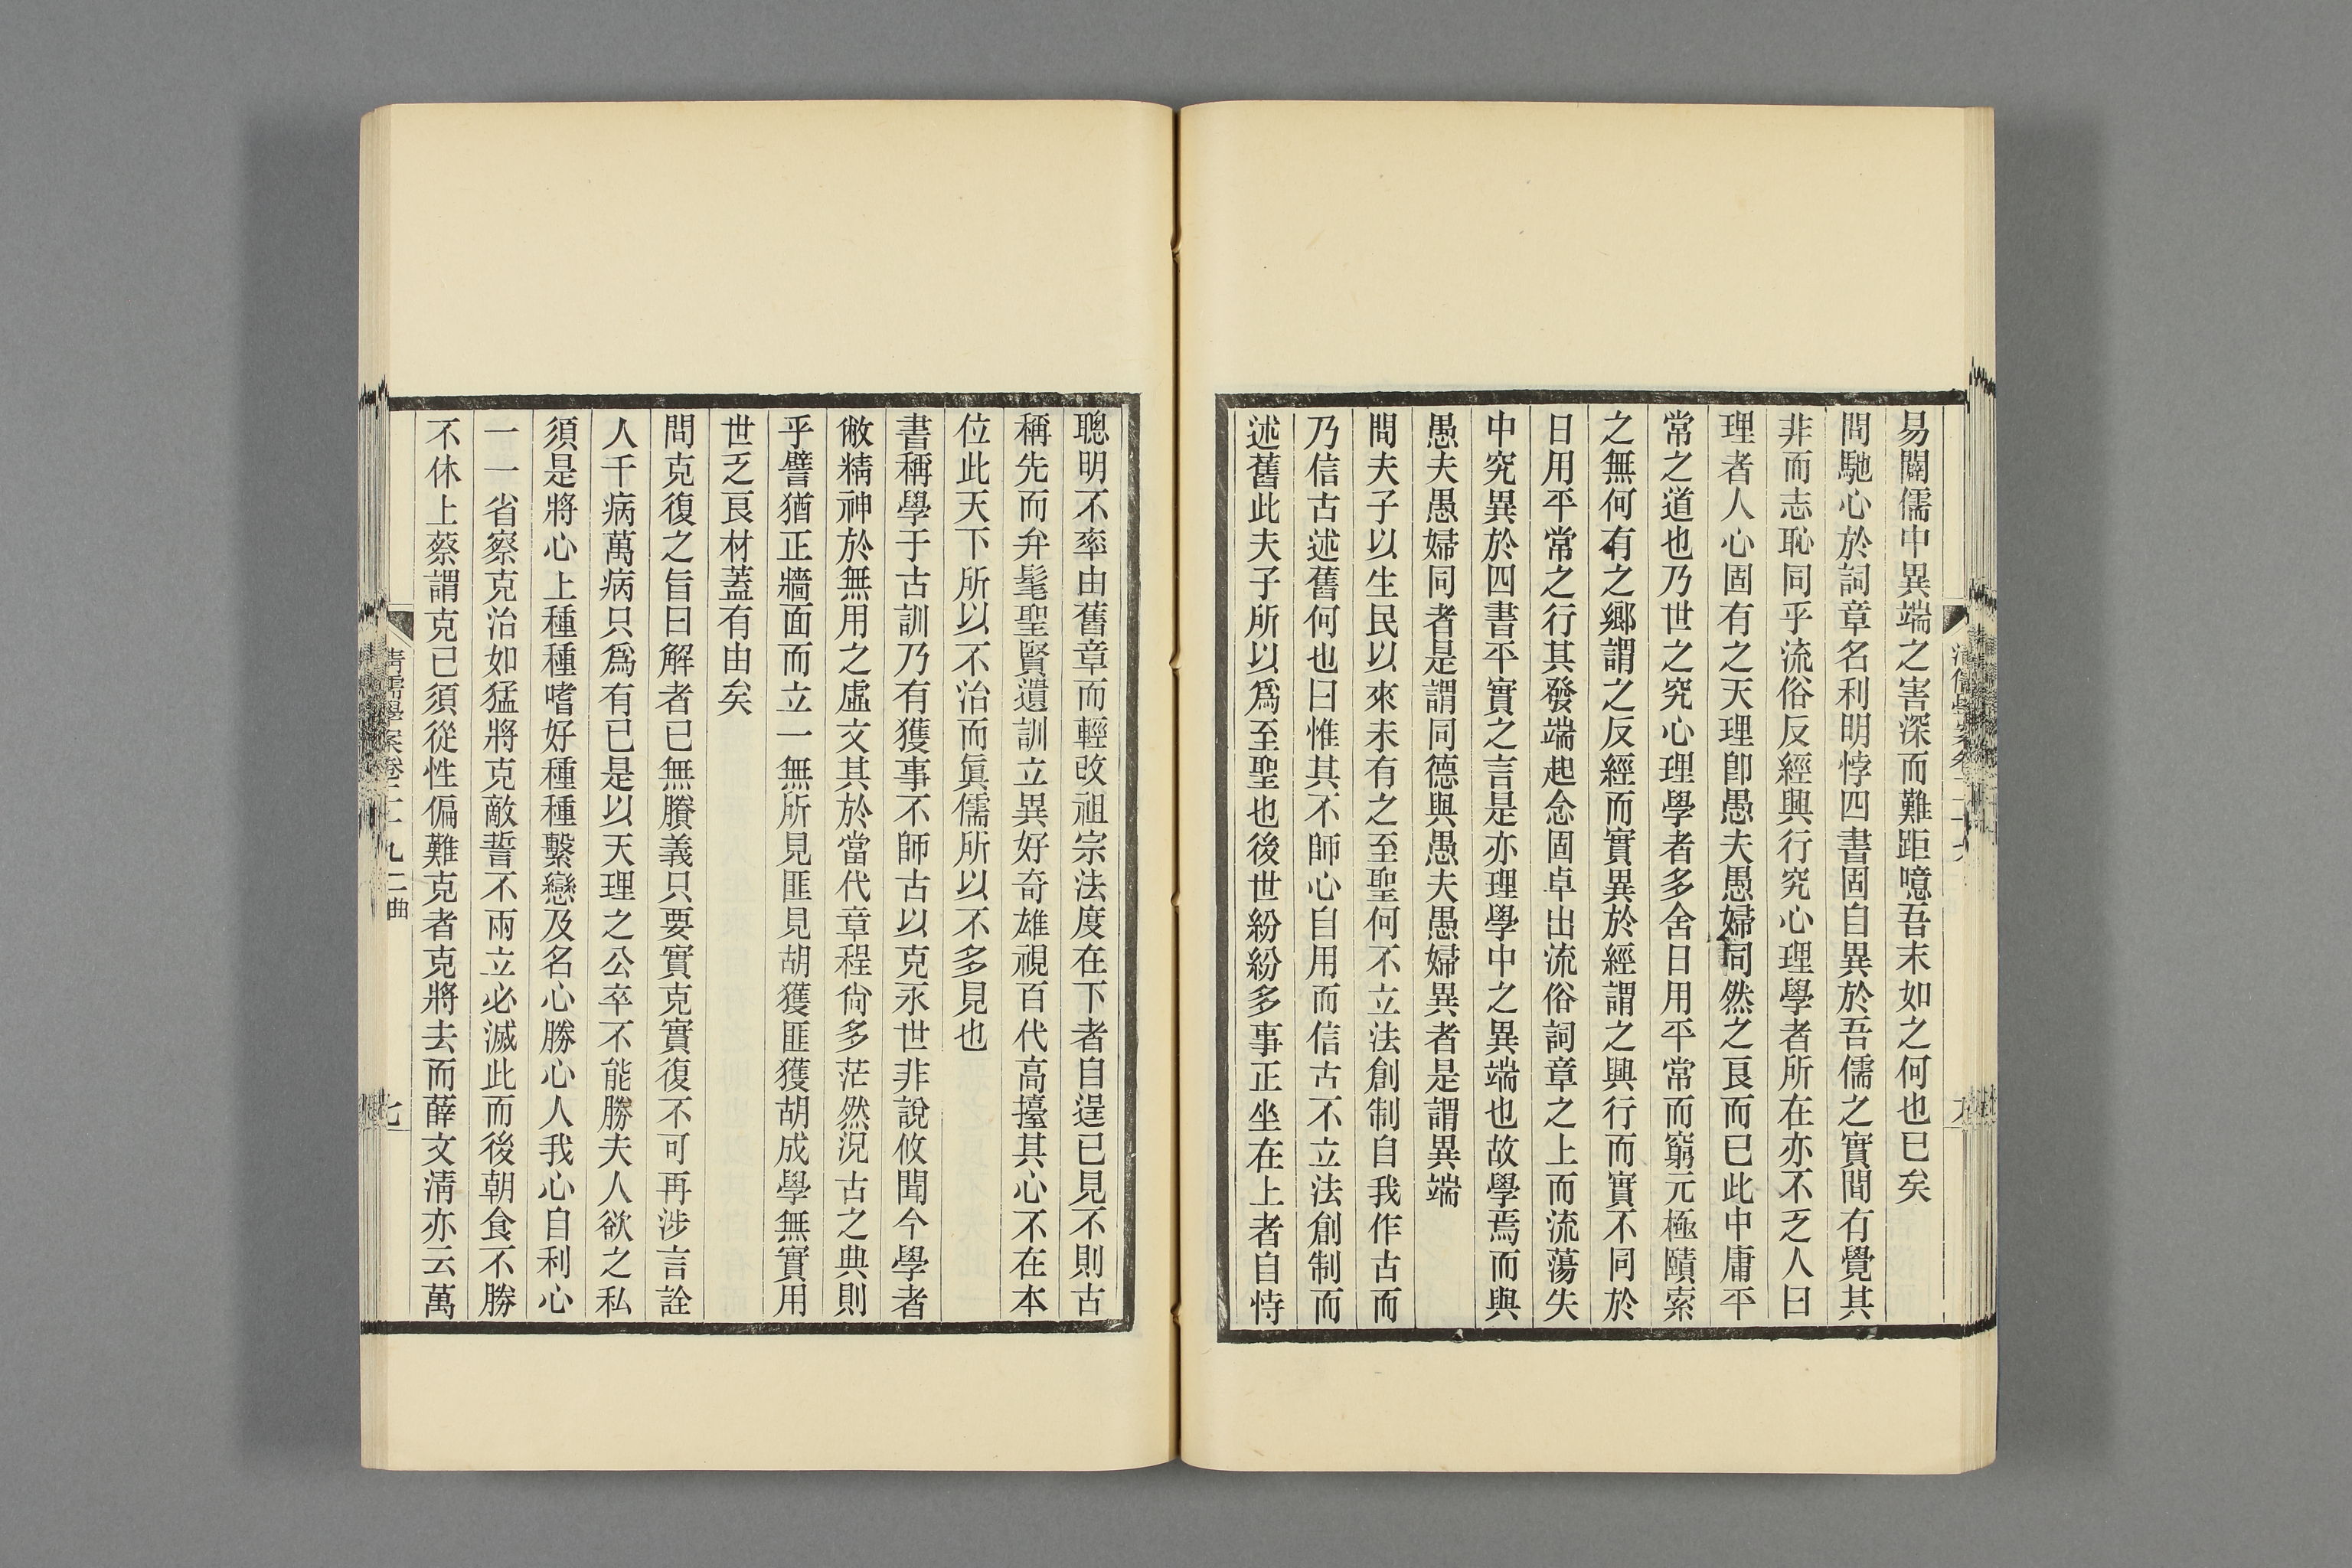 易闢儒中異端之害深而難距噫吾末如之何也已矣
問馳心於詞章名利明悖四書固自異於吾儒之實間有覺其
非而志恥同乎流俗反經興行究心理學者所在亦不乏人曰
理者人心固有之天理卽愚夫愚婦同然之良而已此中庸平
常之道也乃世之究心理學者多舍日用平常而窮元極賾索
之無何有之鄉謂之反經而實異於經謂之興行而實不同於
日用平常之行其發端起念固卓出流俗詞章之上而流蕩失
中究異於四書平實之言是亦理學中之異端也故學焉而與
愚夫愚婦同者是謂同德與愚夫愚婦異者是謂異端
問夫子以生民以來未有之至聖何不立法創制自我作古而
乃信古述舊何也曰惟其不師心自用而信古不立法創制而
述舊此夫子所以爲至聖也後世紛紛多事正坐在上者自恃
聰明不率由舊章而輕改祖宗法度在下者自逞己見不則古
稱先而弁髦聖賢遺訓立異好奇雄視百代高擡其心不在本
位此天下所以不治而眞儒所以不多見也
書稱學于古訓乃有獲事不師古以克永世非說攸聞今學者
敝精神於無用之虛文其於當代章程尙多茫然況古之典則
乎譬猶正牆面而立一無所見匪見胡獲匪獲胡成學無實用
世乏良材蓋有由矣
問克復之旨曰解者已無賸義只要實克實復不可再涉言詮
人千病萬病只爲有己是以天理之公卒不能勝夫人欲之私
須是將心上種種嗜好種種繫戀及名心勝心人我心自利心
一一省察克治如猛將克敵誓不兩立必滅此而後朝食不勝
不休上蔡謂克己須從性偏難克者克將去而薛文淸亦云萬
清儒學案卷二十九二曲
七